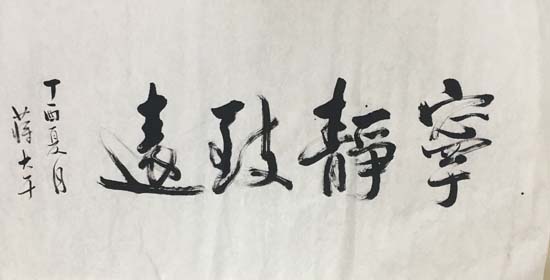 寧靜致遠
丁酉夏月
蔣大平